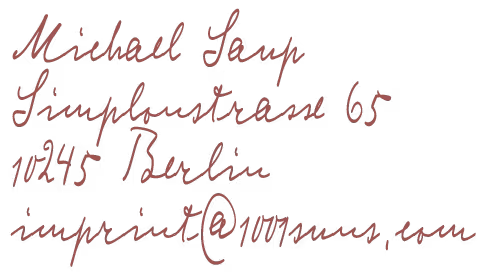 Michael Saup
Simplonstrasse 65
10245 Berlin
imprint@1001suns.com